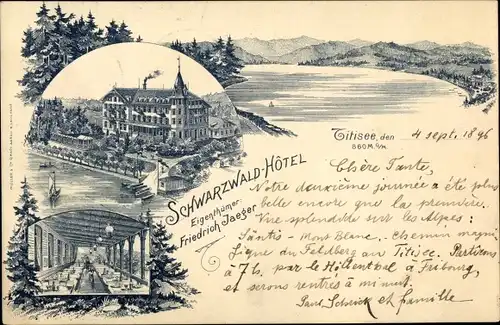 Titisee, den 4 sept. 1896
860 M. ü/M.
SCHWARZWALD-HÔTEL
Eigenthümer:
Friedrich Jaeger
Chère Tante,
Notre deuxième journée a été plus
belle encore que la première.
Vue splendide sur les Alpes:
Säntis - Mont Blanc. Chemin magni-
fique du Feldberg au Titisee. Partirons
à 7 h. par le Höllenthal à Fribourg,
et serons rentrés à minuit.
Paul et famille